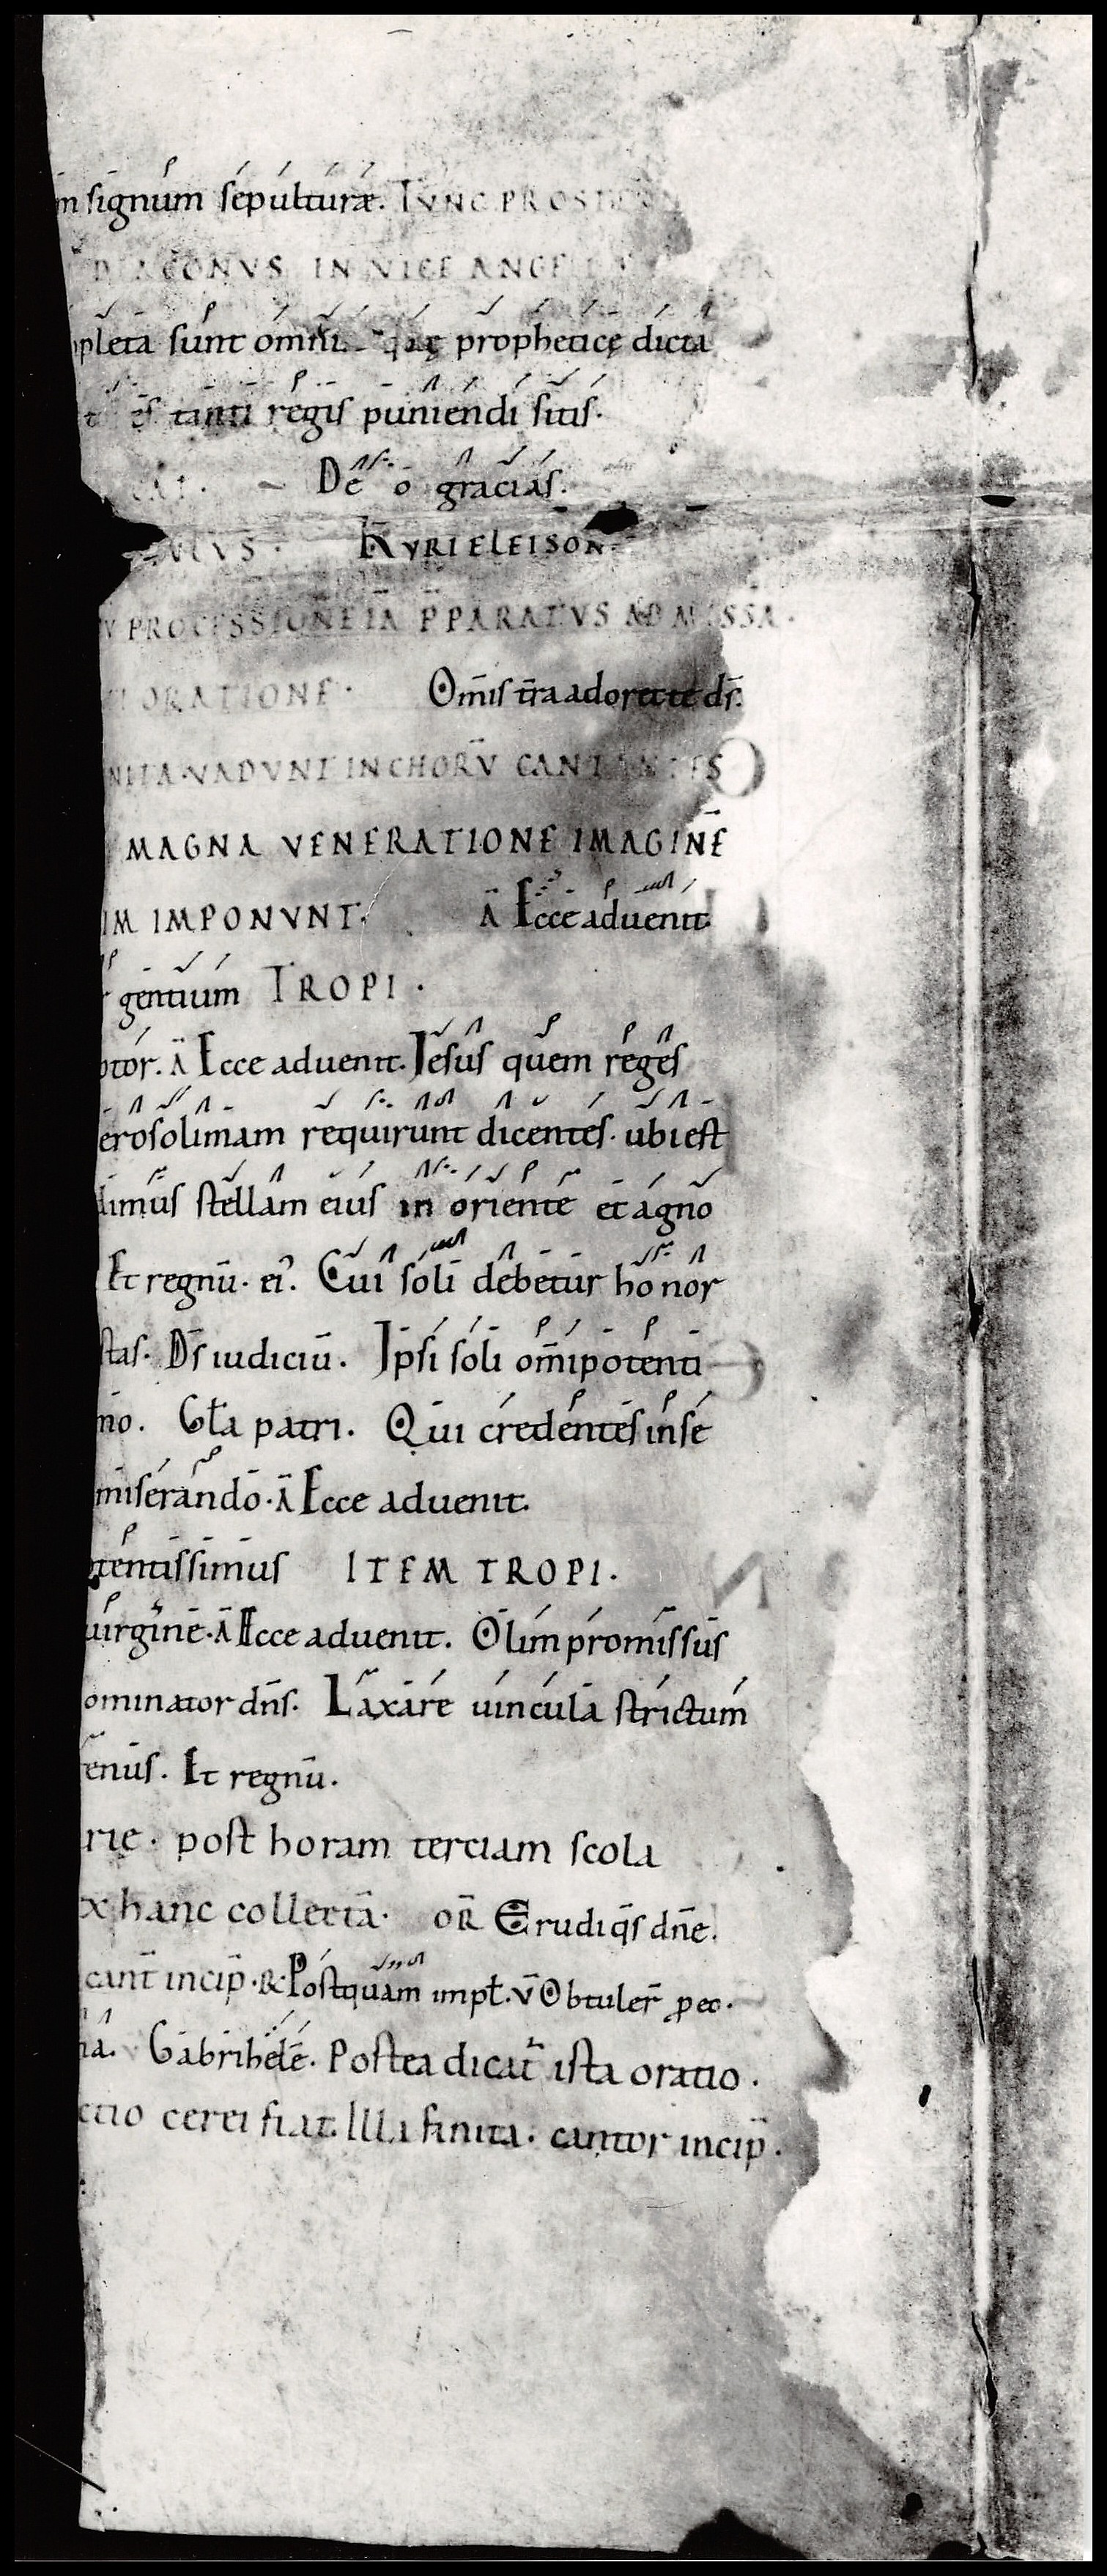 in signum sepulturæ. TVNC PROSTER
DIACONVS IN VICE ANGELI
pleta sunt omnia quę prophetice dicta
tanti regis puniendi sitis.
Deo gracias.
KYRIELEISON.
PROCESSIONE IÃ P̄PARATVS AD MISSA.
ORATIONE. Om̄is t̄ra adoret te ds̄.
NITA. VADVNT IN CHORV̄ CANTANTES
MAGNA VENERATIONE IMAGINĒ
IM IMPONVNT. Ā Ecce aduenit.
gentium TROPI.
ptor. Ā Ecce aduenit. Jesus quem reges
erosolimam requirunt dicentes. ubi est
dimus stellam eius in oriente et agno
Et regnū. ei'. Cui soli debetur honor
stas. Ds̄ iudiciū. Ipsi soli om̄ipotenti
no. Gła patri. Qui credentes in se
miserando. Ā Ecce aduenit.
tentissimus ITEM TROPI.
uirgine. Ā Ecce aduenit. Olim promissus
ominator dn̄s. Laxare uincula strictum
enus. Et regnū.
rie. post horam terciam scola
x hanc collectā. OR̄ Erudi q̄s dn̄e.
cant̄ incip̄. R. Postquam impł. V̄ Obtuler̄ ꝓ eo.
na. Gabrihele. Postea dicat̄ ista oratio.
ctio cerei fiat. Illa finita. cantor incip̄.